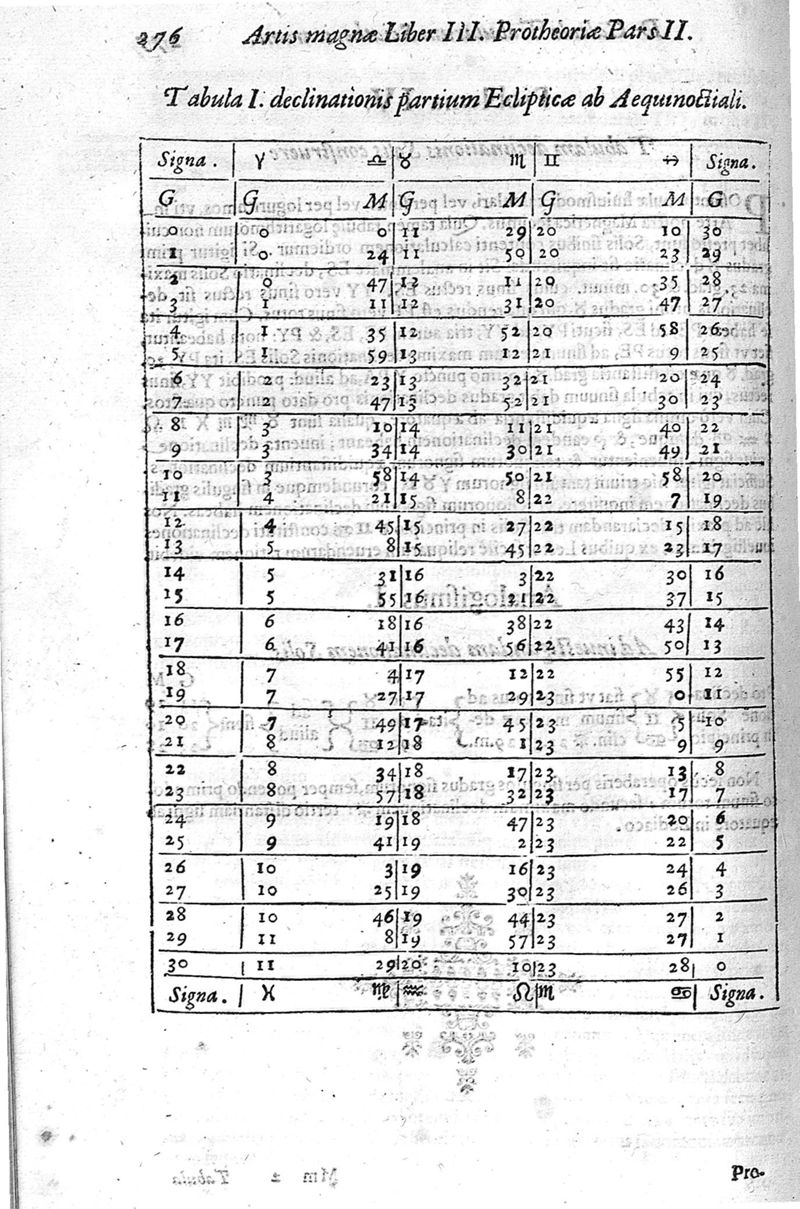 276 Artis magnæ Liber III. Protheoriæ Pars II.
Tabula I. declinationis partium Eclipticæ ab Aequinoctiali.
Signa. ♈ ♎ ♉ ♏ ♊ ♐ Signa.
G G M G M G M G
0 0 0 11 29 20 10 30
1 0 24 11 50 20 23 29
2 0 47 12 11 20 35 28
3 1 11 12 31 20 47 27
4 1 35 12 52 20 58 26
5 1 59 13 12 21 9 25
6 2 23 13 32 21 20 24
7 2 47 13 52 21 30 23
8 3 10 14 11 21 40 22
9 3 34 14 30 21 49 21
10 3 58 14 50 21 58 20
11 4 21 15 8 22 7 19
12 4 45 15 27 22 15 18
13 5 8 15 45 22 23 17
14 5 31 16 3 22 30 16
15 5 55 16 21 22 37 15
16 6 18 16 38 22 43 14
17 6 41 16 56 22 50 13
18 7 4 17 12 22 55 12
19 7 27 17 29 23 0 11
20 7 49 17 45 23 5 10
21 8 12 18 1 23 9 9
22 8 34 18 17 23 13 8
23 8 57 18 32 23 17 7
24 9 19 18 47 23 20 6
25 9 41 19 2 23 22 5
26 10 3 19 16 23 24 4
27 10 25 19 30 23 26 3
28 10 46 19 44 23 27 2
29 11 8 19 57 23 27 1
30 11 29 20 10 23 28 0
Signa. ♓ ♍ ♒ ♌ ♏ ♋ Signa.
Pro-